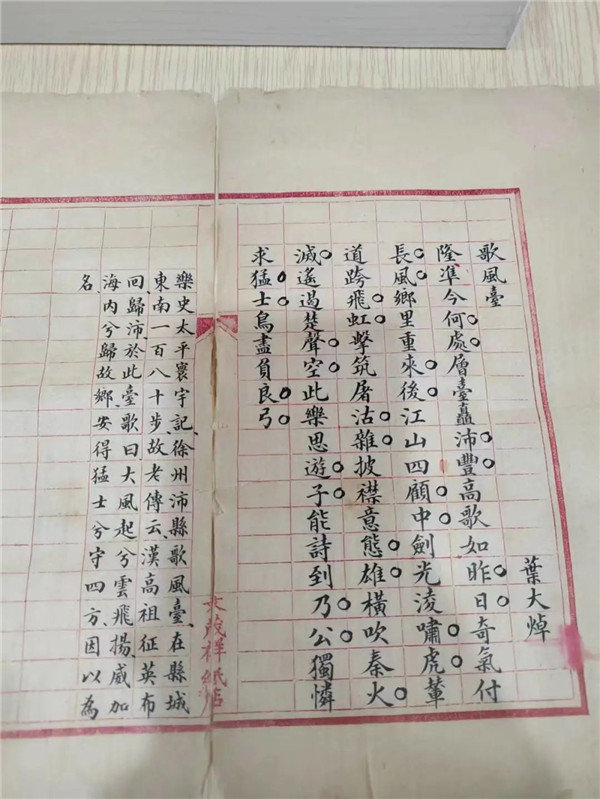 歌風臺 葉大焯
隆準今何處層臺矗沛豐高歌如昨日奇氣付
長風鄉里重來後江山四顧中劍光淩嘯虎輦
道跨飛虹擊筑屠沽雜披襟意態雄橫吹秦火
滅遙過楚聲空此樂思遊子能詩到乃公獨憐
求猛士鳥盡負良弓
茂祥紙店
樂史太平寰宇記、徐州沛縣歌風臺、在縣城
東南一百八十步故老傳云、漢高祖征英布
回、歸沛、於此臺歌曰大風起兮雲飛揚、威加
海內兮歸故鄉安得猛士兮守四方、因以為
名、